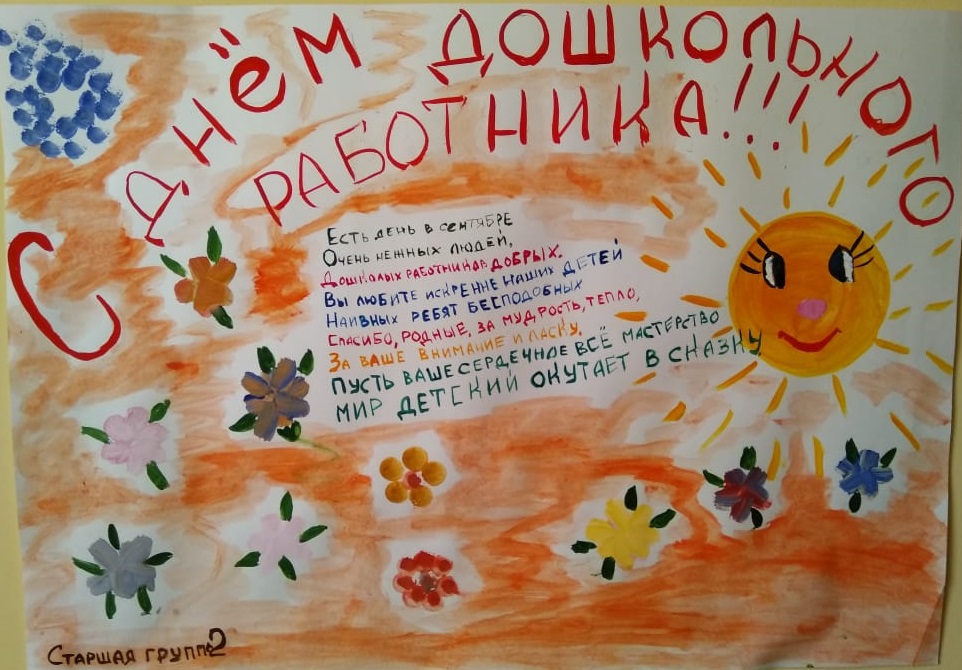 С ДНЁМ ДОШКОЛЬНОГО
РАБОТНИКА!!!
ЕСТЬ ДЕНЬ В СЕНТЯБРЕ
ОЧЕНЬ НЕЖНЫХ ЛЮДЕЙ,
ДОШКОЛЫХ РАБОТНИКОВ ДОБРЫХ.
ВЫ ЛЮБИТЕ ИСКРЕННЕ НАШИХ ДЕТЕЙ
НАИВНЫХ РЕБЯТ БЕСПОДОБНЫХ
СПАСИБО, РОДНЫЕ, ЗА МУДРОСТЬ, ТЕПЛО,
ЗА ВАШЕ ВНИМАНИЕ И ЛАСКУ.
ПУСТЬ ВАШЕ СЕРДЕЧНОЕ ВСЁ МАСТЕРСТВО
МИР ДЕТСКИЙ ОКУТАЕТ В СКАЗКУ
СТАРШАЯ ГРУППА 2